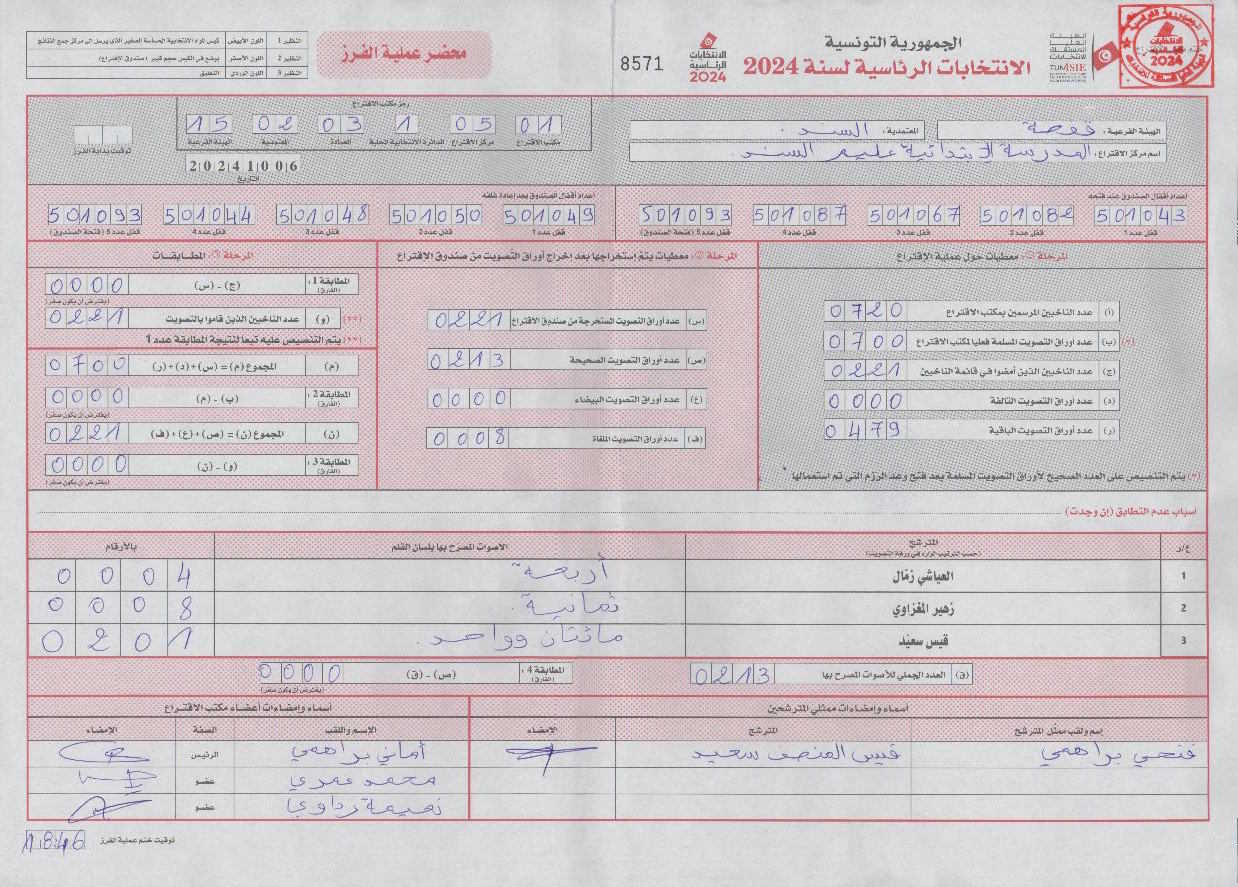 الجمهورية التونسية
الانتخابات الرئاسية لسنة 2024
الهيئة
العليا
المستقلة
للانتخابات
TUNISIE
الانتخابات
الرئاسية
2024
8571
محضر عملية الفرز
النظير 1 اللون الأبيض
النظير 2 اللون الأصفر يوضع في الكيس حجم كبير (صندوق الاقتراع)
النظير 3 اللون الوردي التعليق
الهيئة الفرعية : قفصة المعتمدية : السند
اسم مركز الاقتراع : المدرسة الابتدائية عليم السند
رمز مكتب الاقتراع
01 05 1 03 02 15
مكتب الاقتراع مركز الاقتراع الدائرة الانتخابية المحلية العمادة المعتمدية الهيئة الفرعية
20241006
التاريخ
توقيت بداية الفرز
أعداد أقفال الصندوق عند فتحه
501043 501082 501067 501087 501093
قفل عدد 1 قفل عدد 2 قفل عدد 3 قفل عدد 4 قفل عدد 5 (فتحة الصندوق)
أعداد أقفال الصندوق بعد إعادة غلقه
501049 501050 501048 501044 501093
قفل عدد 1 قفل عدد 2 قفل عدد 3 قفل عدد 4 قفل عدد 5 (فتحة الصندوق)
المرحلة ①: معطيات حول عملية الاقتراع
(أ) عدد الناخبين المرسمين بمكتب الاقتراع 0720
(*) (ب) عدد أوراق التصويت المسلمة فعليا لمكتب الاقتراع 0700
(ج) عدد الناخبين الذين أمضوا في قائمة الناخبين 0221
(د) عدد أوراق التصويت التالفة 0000
(ر) عدد أوراق التصويت الباقية 0479
(*) يتم التنصيص على العدد الصحيح لأوراق التصويت المسلمة بعد فتح وعد الرزم التي تم استعمالها
المرحلة ②: معطيات يتم استخراجها بعد إخراج أوراق التصويت من صندوق الاقتراع
(س) عدد أوراق التصويت المستخرجة من صندوق الاقتراع 0221
(ص) عدد أوراق التصويت الصحيحة 0213
(ع) عدد أوراق التصويت البيضاء 0000
(ف) عدد أوراق التصويت الملغاة 0008
المرحلة ③: المطابقات
المطابقة 1 : (الفارق) (ج) - (س) 0000
(يفترض أن يكون صفر)
(**) (و) عدد الناخبين الذين قاموا بالتصويت 0221
(**) يتم التنصيص عليه تبعا لنتيجة المطابقة عدد 1
(م) المجموع (م) = (س) + (د) + (ر) 0700
المطابقة 2 : (الفارق) (ب) - (م) 0000
(يفترض أن يكون صفر)
(ن) المجموع (ن) = (ص) + (ع) + (ف) 0221
المطابقة 3 : (الفارق) (و) - (ن) 0000
(يفترض أن يكون صفر)
أسباب عدم التطابق (إن وجدت)
ع/ر المترشح الأصوات المصرح بها بلسان القلم بالأرقام
(حسب الترتيب الوارد في ورقة التصويت)
1 العياشي زمّال أربعة 0004
2 زهير المغزاوي ثمانية 0008
3 قيس سعيّد مائتان وواحد 0201
(ق) العدد الجملي للأصوات المصرح بها 0213
المطابقة 4 : (الفارق) (ص) - (ق) 0000
(يفترض أن يكون صفر)
أسماء وإمضاءات ممثلي المترشحين
إسم ولقب ممثل المترشح المترشح الإمضاء
فتحي براهمي قيس المنصف سعيد
أسماء وإمضاءات أعضاء مكتب الاقتراع
الإسم واللقب الصفة الإمضاء
أماني براهمي الرئيس
محمد عمري عضو
نعيمة رداوي عضو
توقيت ختم عملية الفرز 18:46